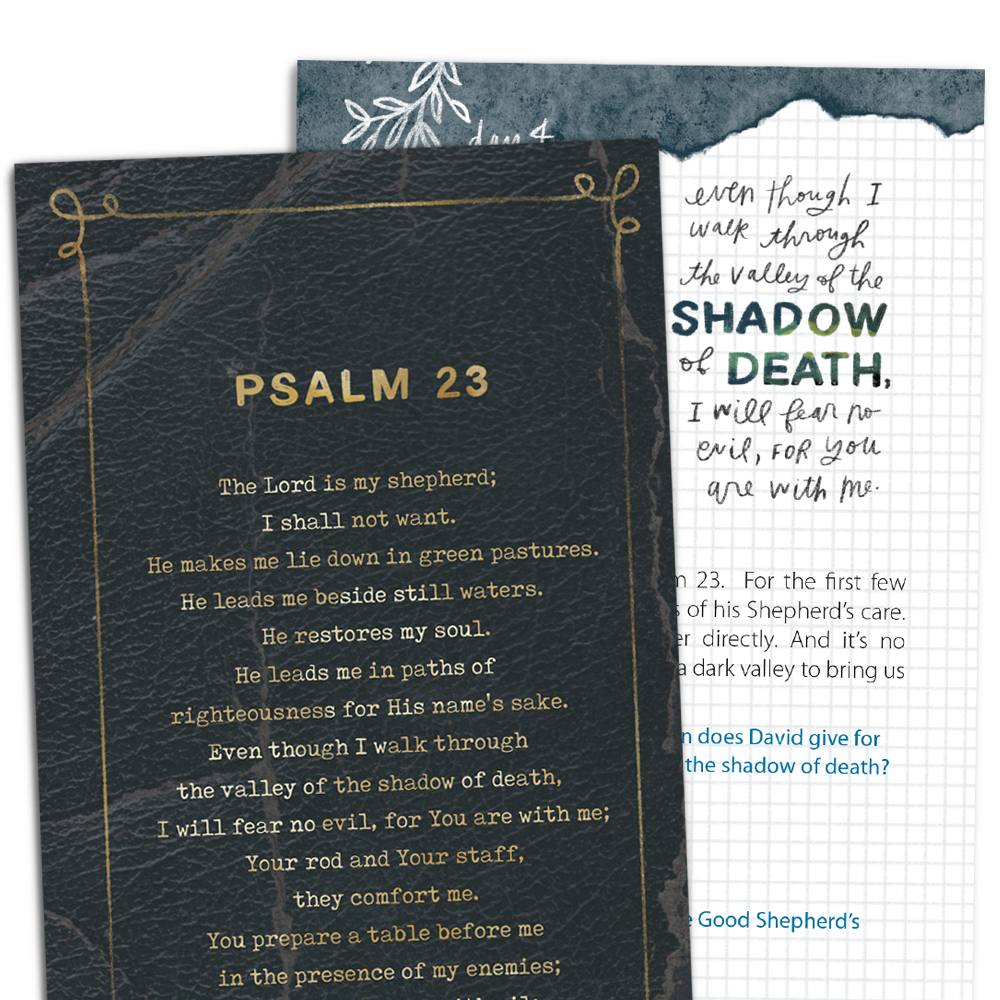 PSALM 23
The Lord is my shepherd;
I shall not want.
He makes me lie down in green pastures.
He leads me beside still waters.
He restores my soul.
He leads me in paths of
righteousness for His name's sake.
Even though I walk through
the valley of the shadow of death,
I will fear no evil, for You are with me;
Your rod and Your staff,
they comfort me.
You prepare a table before me
in the presence of my enemies;
even though I
walk through
the valley of the
SHADOW
of DEATH,
I will fear no
evil, FOR YOU
are with me.
23. For the first few
of his Shepherd's care.
directly. And it's no
a dark valley to bring us
does David give for
the shadow of death?
Good Shepherd's